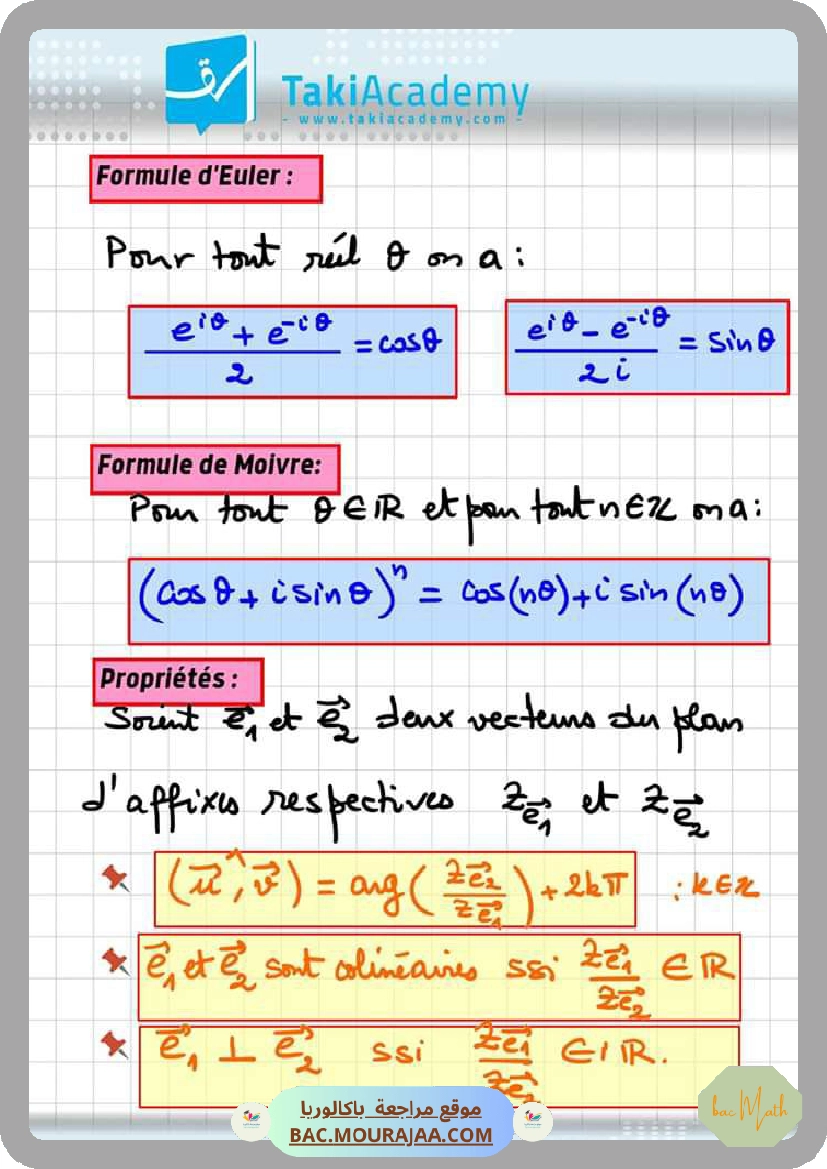 TakiAcademy
- www.takiacademy.com -
Formule d'Euler :
Pour tout réél θ on a :
(e^{iθ} + e^{-iθ})/2 = cosθ
(e^{iθ} - e^{-iθ})/2i = sinθ
Formule de Moivre:
Pour tout θ ∈ ℝ et pour tout n ∈ ℤ on a :
(cosθ + i sinθ)^n = cos(nθ) + i sin(nθ)
Propriétés :
Soient e⃗₁ et e⃗₂ deux vecteurs du plan
d'affixes respectives z_{e⃗₁} et z_{e⃗₂}
(u⃗ ^, v⃗) = arg(z_{e⃗₂}/z_{e⃗₁}) + 2kπ : k ∈ ℤ
e⃗₁ et e⃗₂ sont colinéaires ssi z_{e⃗₁}/z_{e⃗₂} ∈ ℝ
e⃗₁ ⊥ e⃗₂ ssi z_{e⃗₁}/z_{e⃗₂} ∈ iℝ.
موقع مراجعة باكالوريا
BAC.MOURAJAA.COM
bac Math